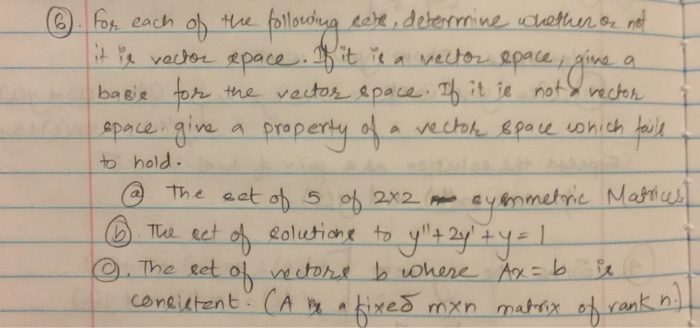 ⑥. For each of the following sets, determine whether or not
it is vector space. If it is a vector space, give a
basis for the vector space. If it is not a vector
space. give a property of a vector space which fails
to hold.
ⓐ The set of S of 2x2 symmetric Matrices
ⓑ. The set of solutions to y"+2y'+y=1
ⓒ. The set of vectors b where Ax=b is
consistent. (A is a fixed mxn matrix of rank n.)